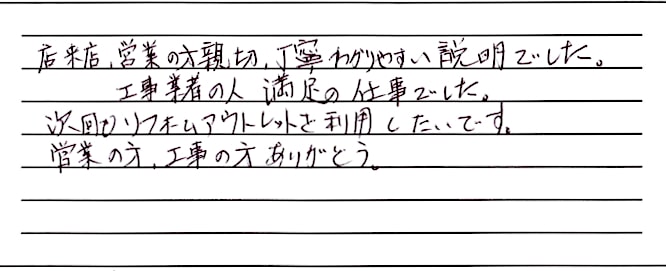 店来店、営業の方親切、丁寧わかりやすい説明でした。
工事業者の人 満足の仕事でした。
次回もリフォームアウトレットを利用したいです。
営業の方、工事の方ありがとう。